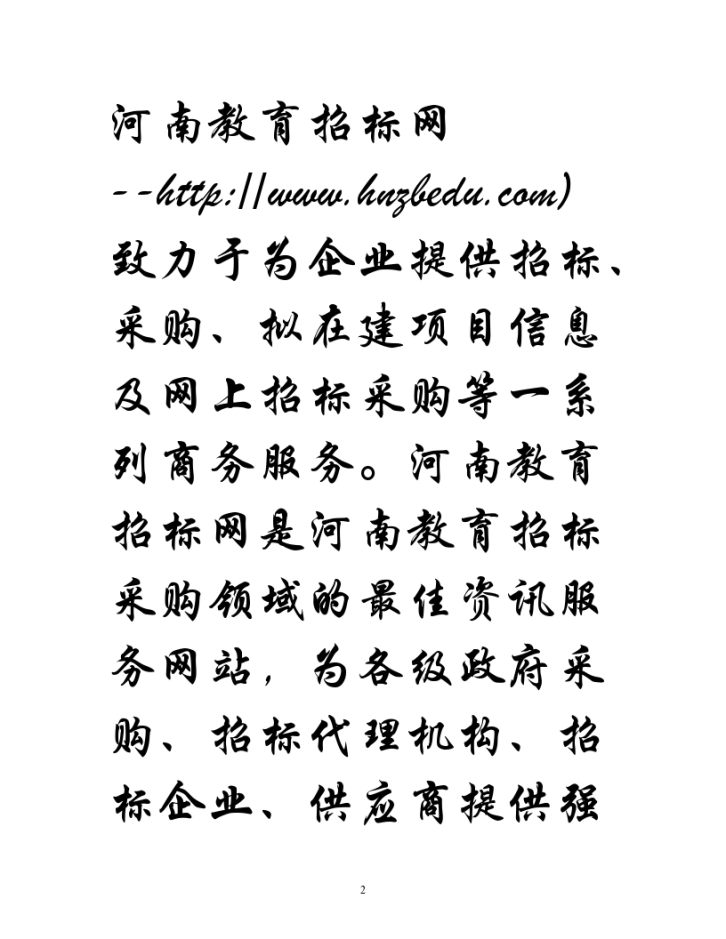 河南教育招标网
--http://www.hnzbedu.com)
致力于为企业提供招标、
采购、拟在建项目信息
及网上招标采购等一系
列商务服务。河南教育
招标网是河南教育招标
采购领域的最佳资讯服
务网站，为各级政府采
购、招标代理机构、招
标企业、供应商提供强
2